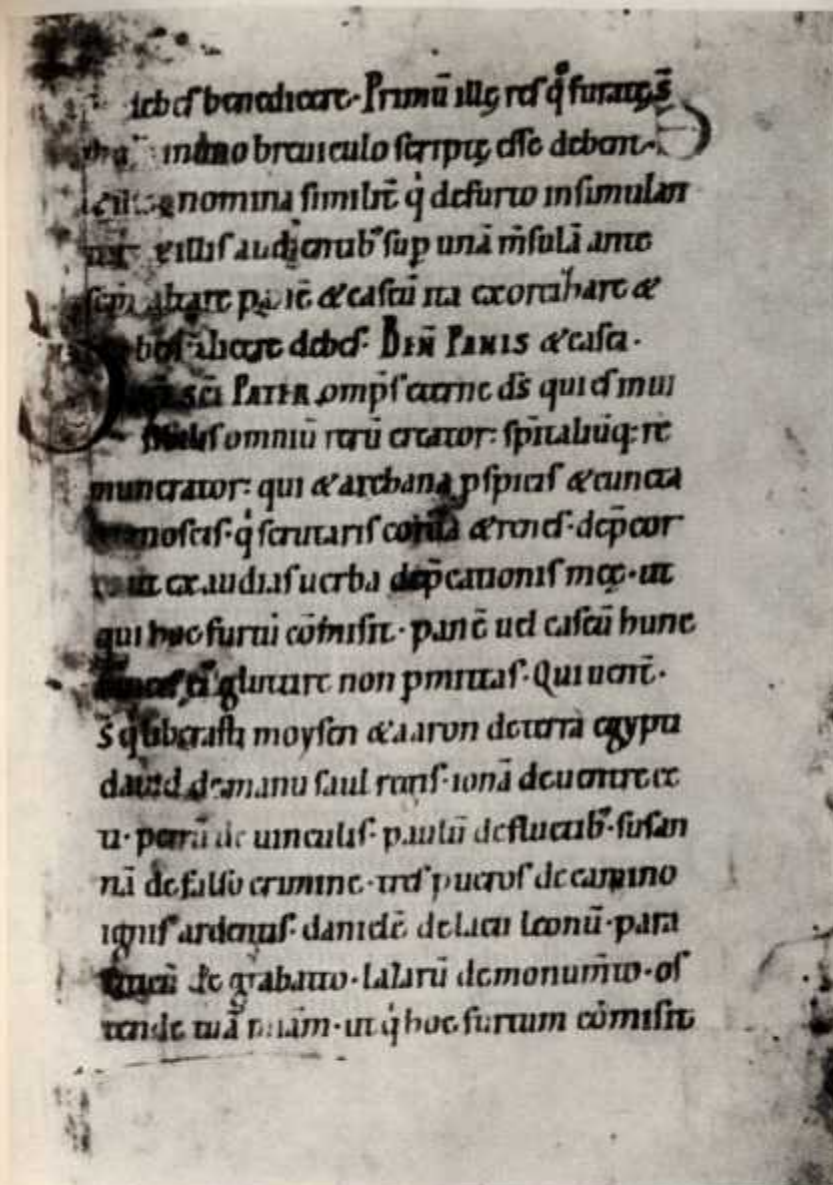 debes benedicere. Primū illę res q̊ furatę s̄
in uno breuiculo scriptę esse debent.
nomina similit̄ q̇ de furto insimulan
illis audientib᷒ sup unā m̄sulā ante
altare panē & caseū ita exorcizare &
debes. Ben̄ Panis & casei.
sc̄i Pater omp̄s eterne ds̄ qui es inui
omniū rerū creator: sp̄italiūq: re
munerator: qui & archana pspicis & cuncta
q̇ scrutaris corda & renes. dep̄cor
ut exaudias uerba dep̄cationis meę. ut
qui hoc furtū cōmisit. panē uel caseū hunc
glutire non pmittas. Qui uent̄.
s̄ q̇ liberasti moysen & aaron de terra egypti
dauid de manu saul regis. ionā de uentre ce
ti. petrū de uinculis. paulū de fluctib᷒. susan
nā de falso crimine. tres pueros de camino
ignis ardentis. danielē de lacu leonū. para
liticū de grabatto. lazarū de monum̄to. os
tende tuā uiam. ut q̇ hoc furtum cōmisit